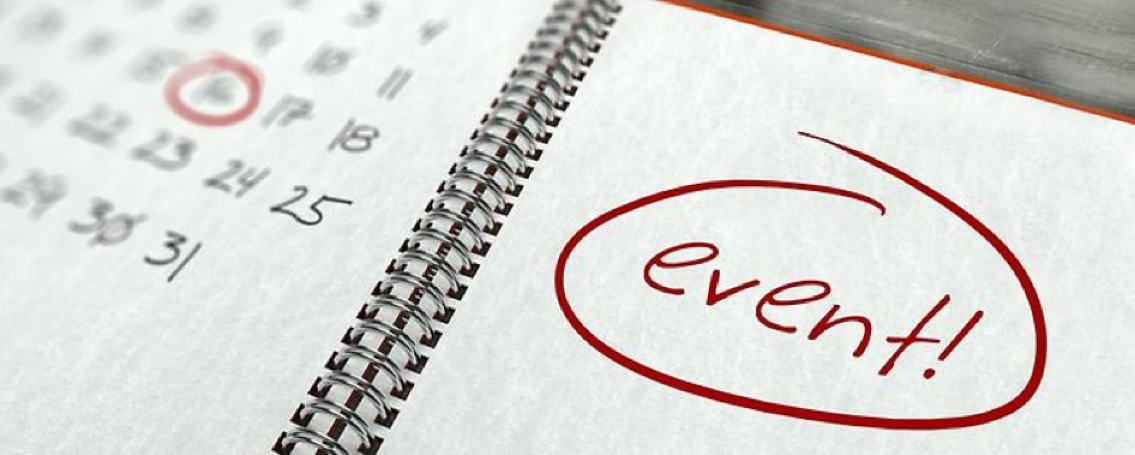 3 4
9 10 11
17 18
22 23 24 25
29 30 31
event!